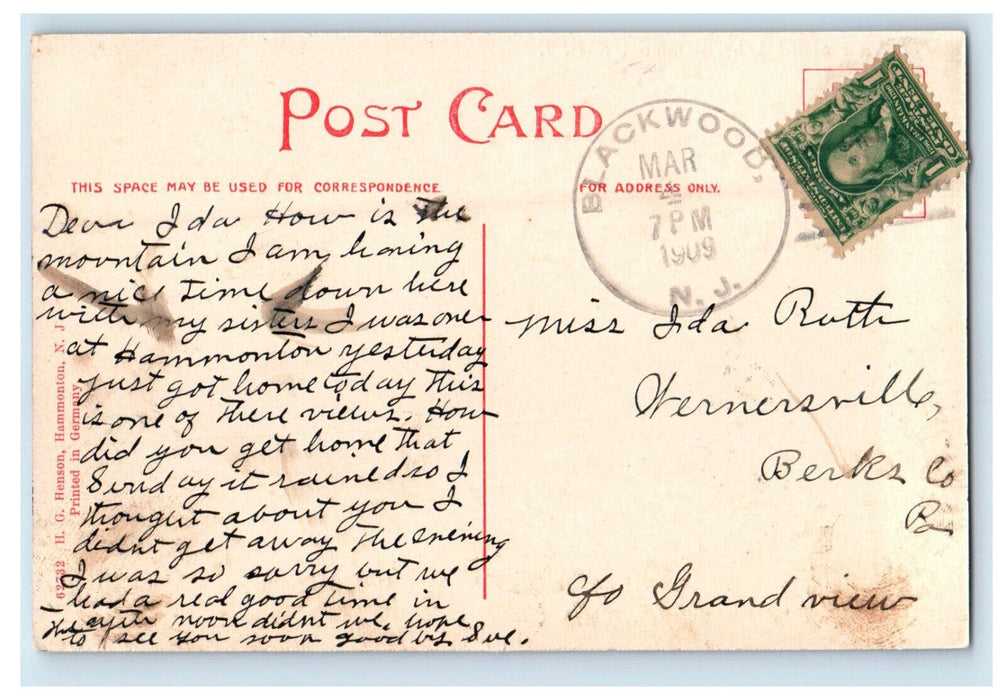 POST CARD
THIS SPACE MAY BE USED FOR CORRESPONDENCE
FOR ADDRESS ONLY.
BLACKWOOD,
MAR
4
7 PM
1909
N. J.
1
1
Dear Ida How is the
mountain I am having
a nice time down here
with my sisters I was over
at Hammonton yesterday
just got home today this
is one of there views. How
did you get home that
Sunday it rained so I
thought about you I
didnt get away the evening
I was so sorry but we
had a real good time in
the after noon didnt we, hope
to see you soon good by
Miss Ida Ruth
Wernersville,
Berks Co
Pa
c/o Grand view
62732 H. G. Henson, Hammonton, N. J.
Printed in Germany